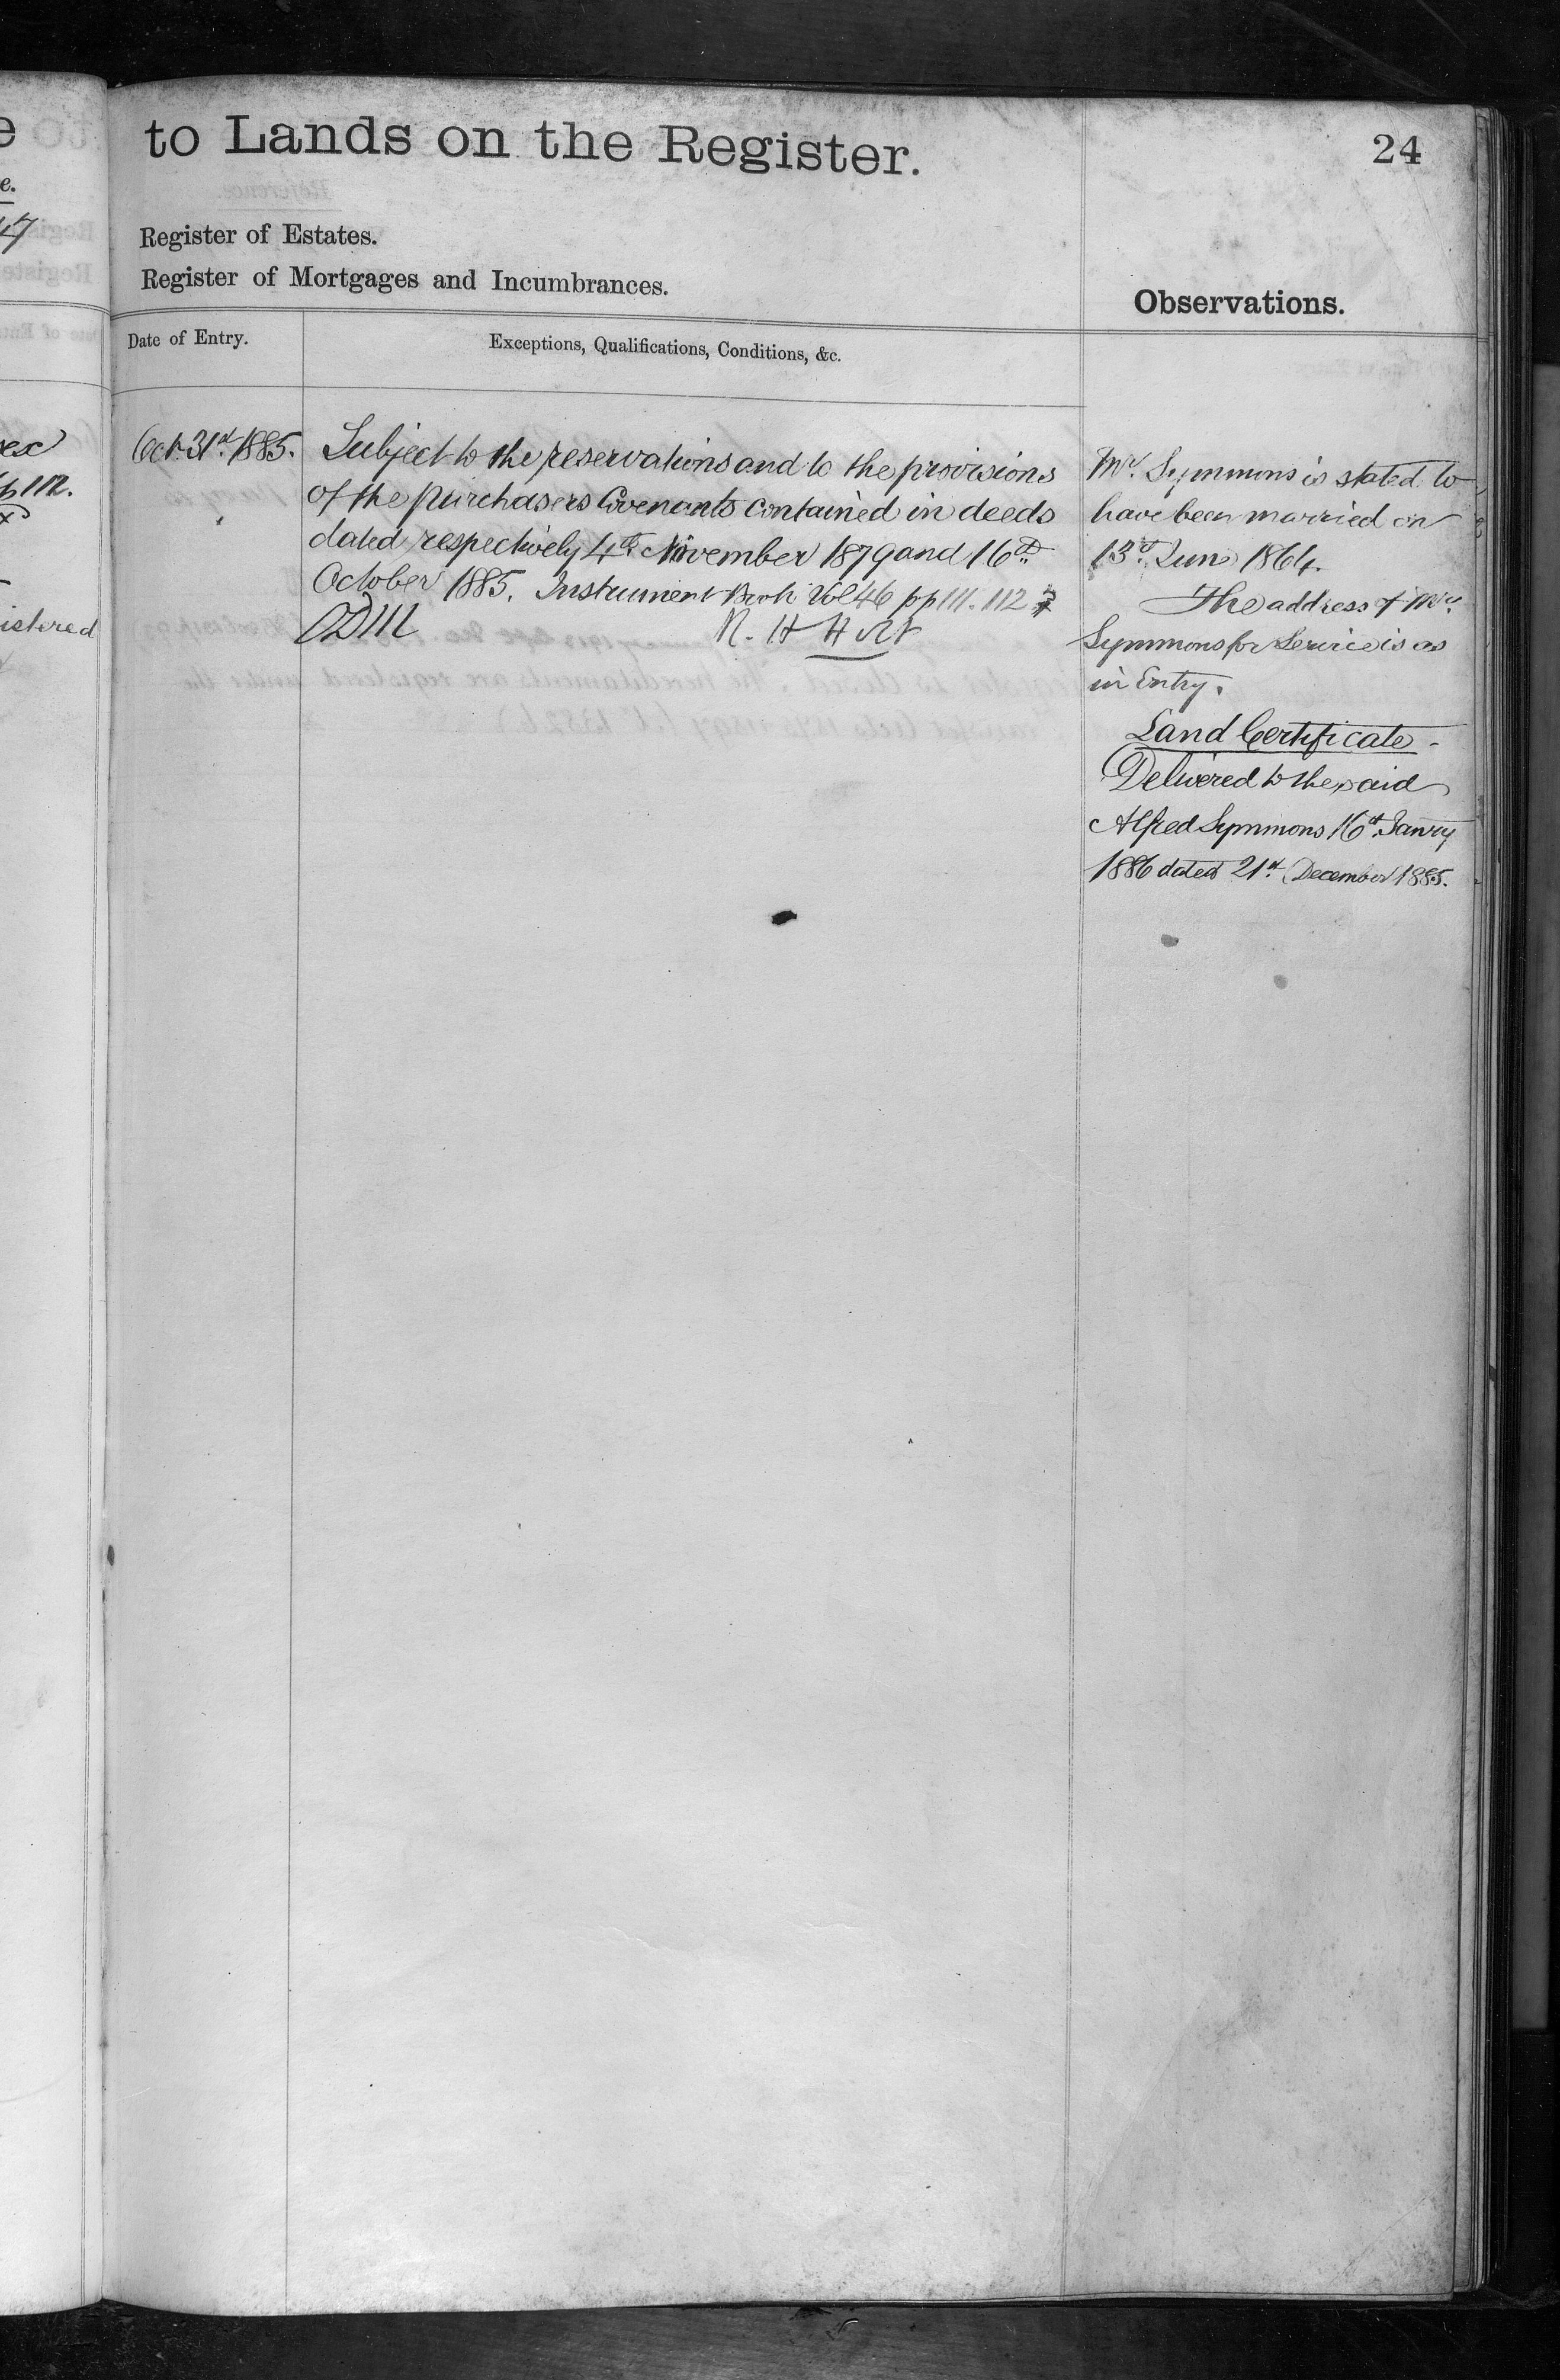 to Lands on the Register.
24
Register of Estates.
Register of Mortgages and Incumbrances.
Observations.
Date of Entry.
Exceptions, Qualifications, Conditions, &c.
Octr. 31st. 1885.
Subject to the reservations and to the provisions
of the purchasers Covenants contained in deeds
dated respectively 4th November 1879 and 16th
October 1885. Instrument Book Vol 46 pp 111. 112
ODM
R. H H
Mr. Symmons is stated to
have been married on
13th June 1864.
The address of Mr.
Symmons for Service is as
in Entry.
Land Certificate -
Delivered to the said
Alfred Symmons 16th. Janry
1886 dated 21st. December 1885.
istered